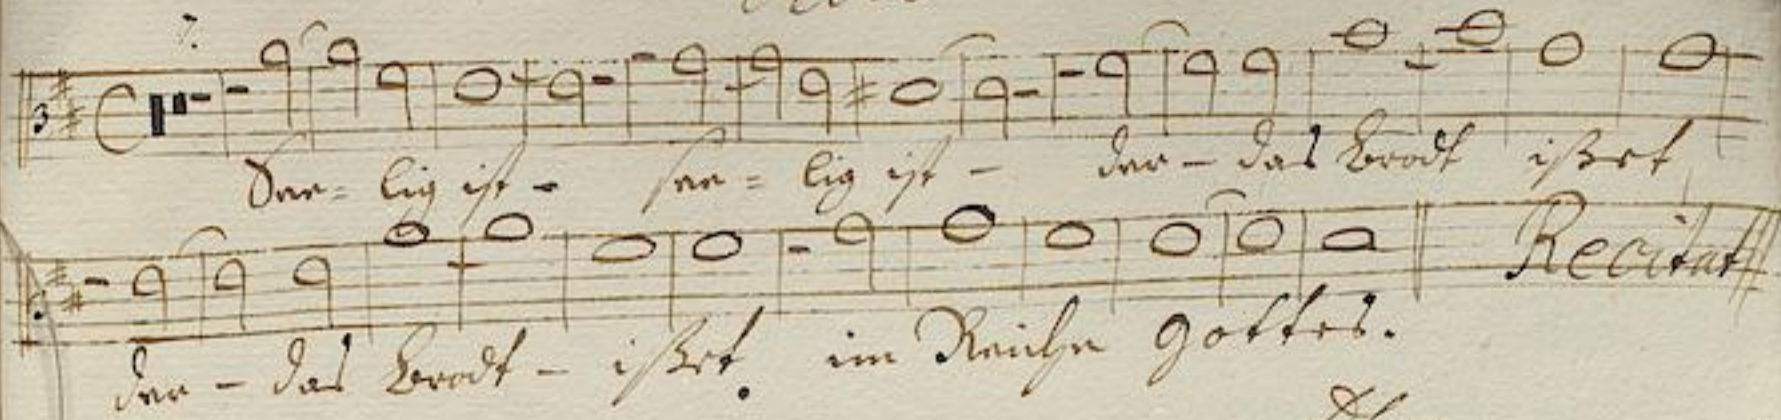 7.
See= lig ist - see= lig ist - der - das Brodt ißet
der - das Brodt - ißet. im Reiche Gottes.
Recitat